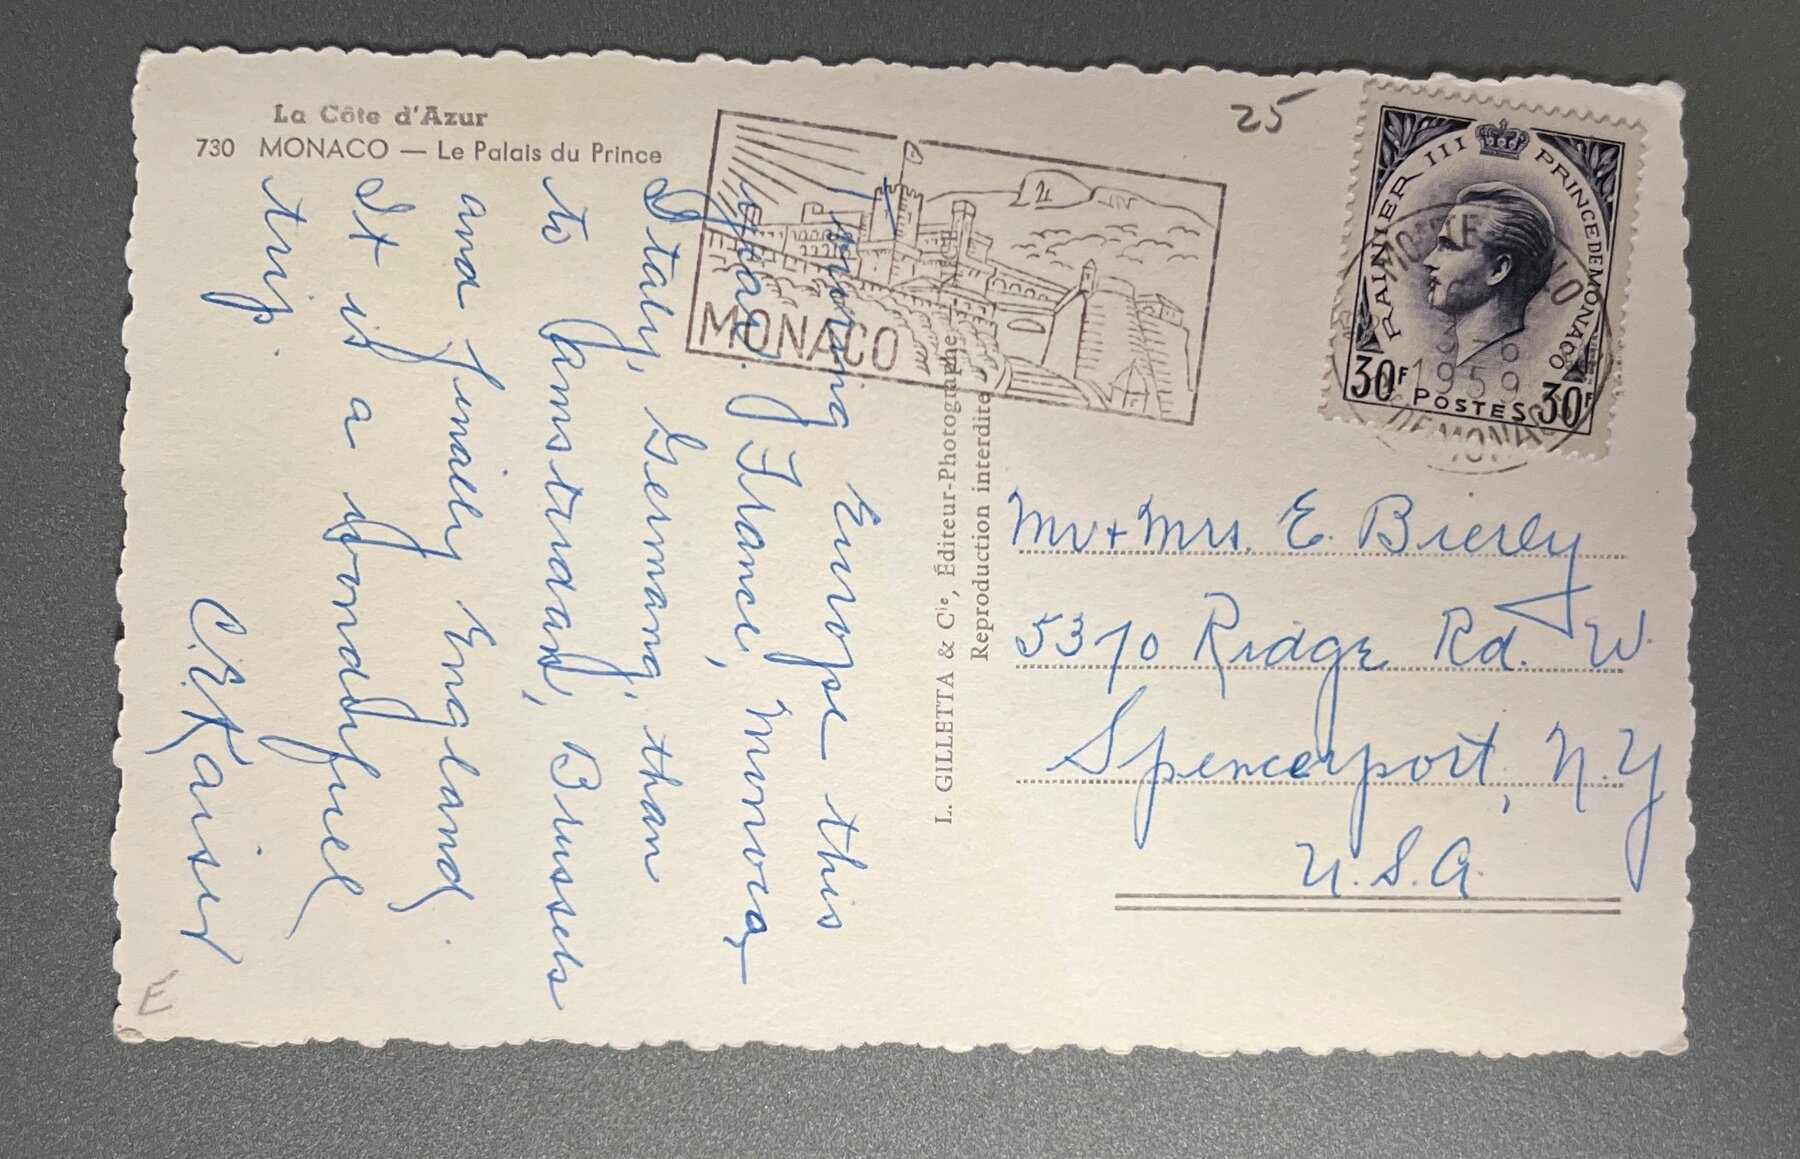 La Côte d'Azur
730 MONACO — Le Palais du Prince
Touring Europe this
year. France, Monoca,
Italy, Germany, than
to Amsterdam, Brussels
and finally England.
It is a wonderful
trip.
C.E. Kaiser
E
MONACO
L. GILLETTA & Cie, Éditeur-Photographe
Reproduction interdite
25
RAINIER III PRINCE DE MONACO
30F POSTES 30F
1959
Mr + Mrs. E. Bierly
5370 Ridge Rd. W.
Spencerport, N.Y
U.S.A.